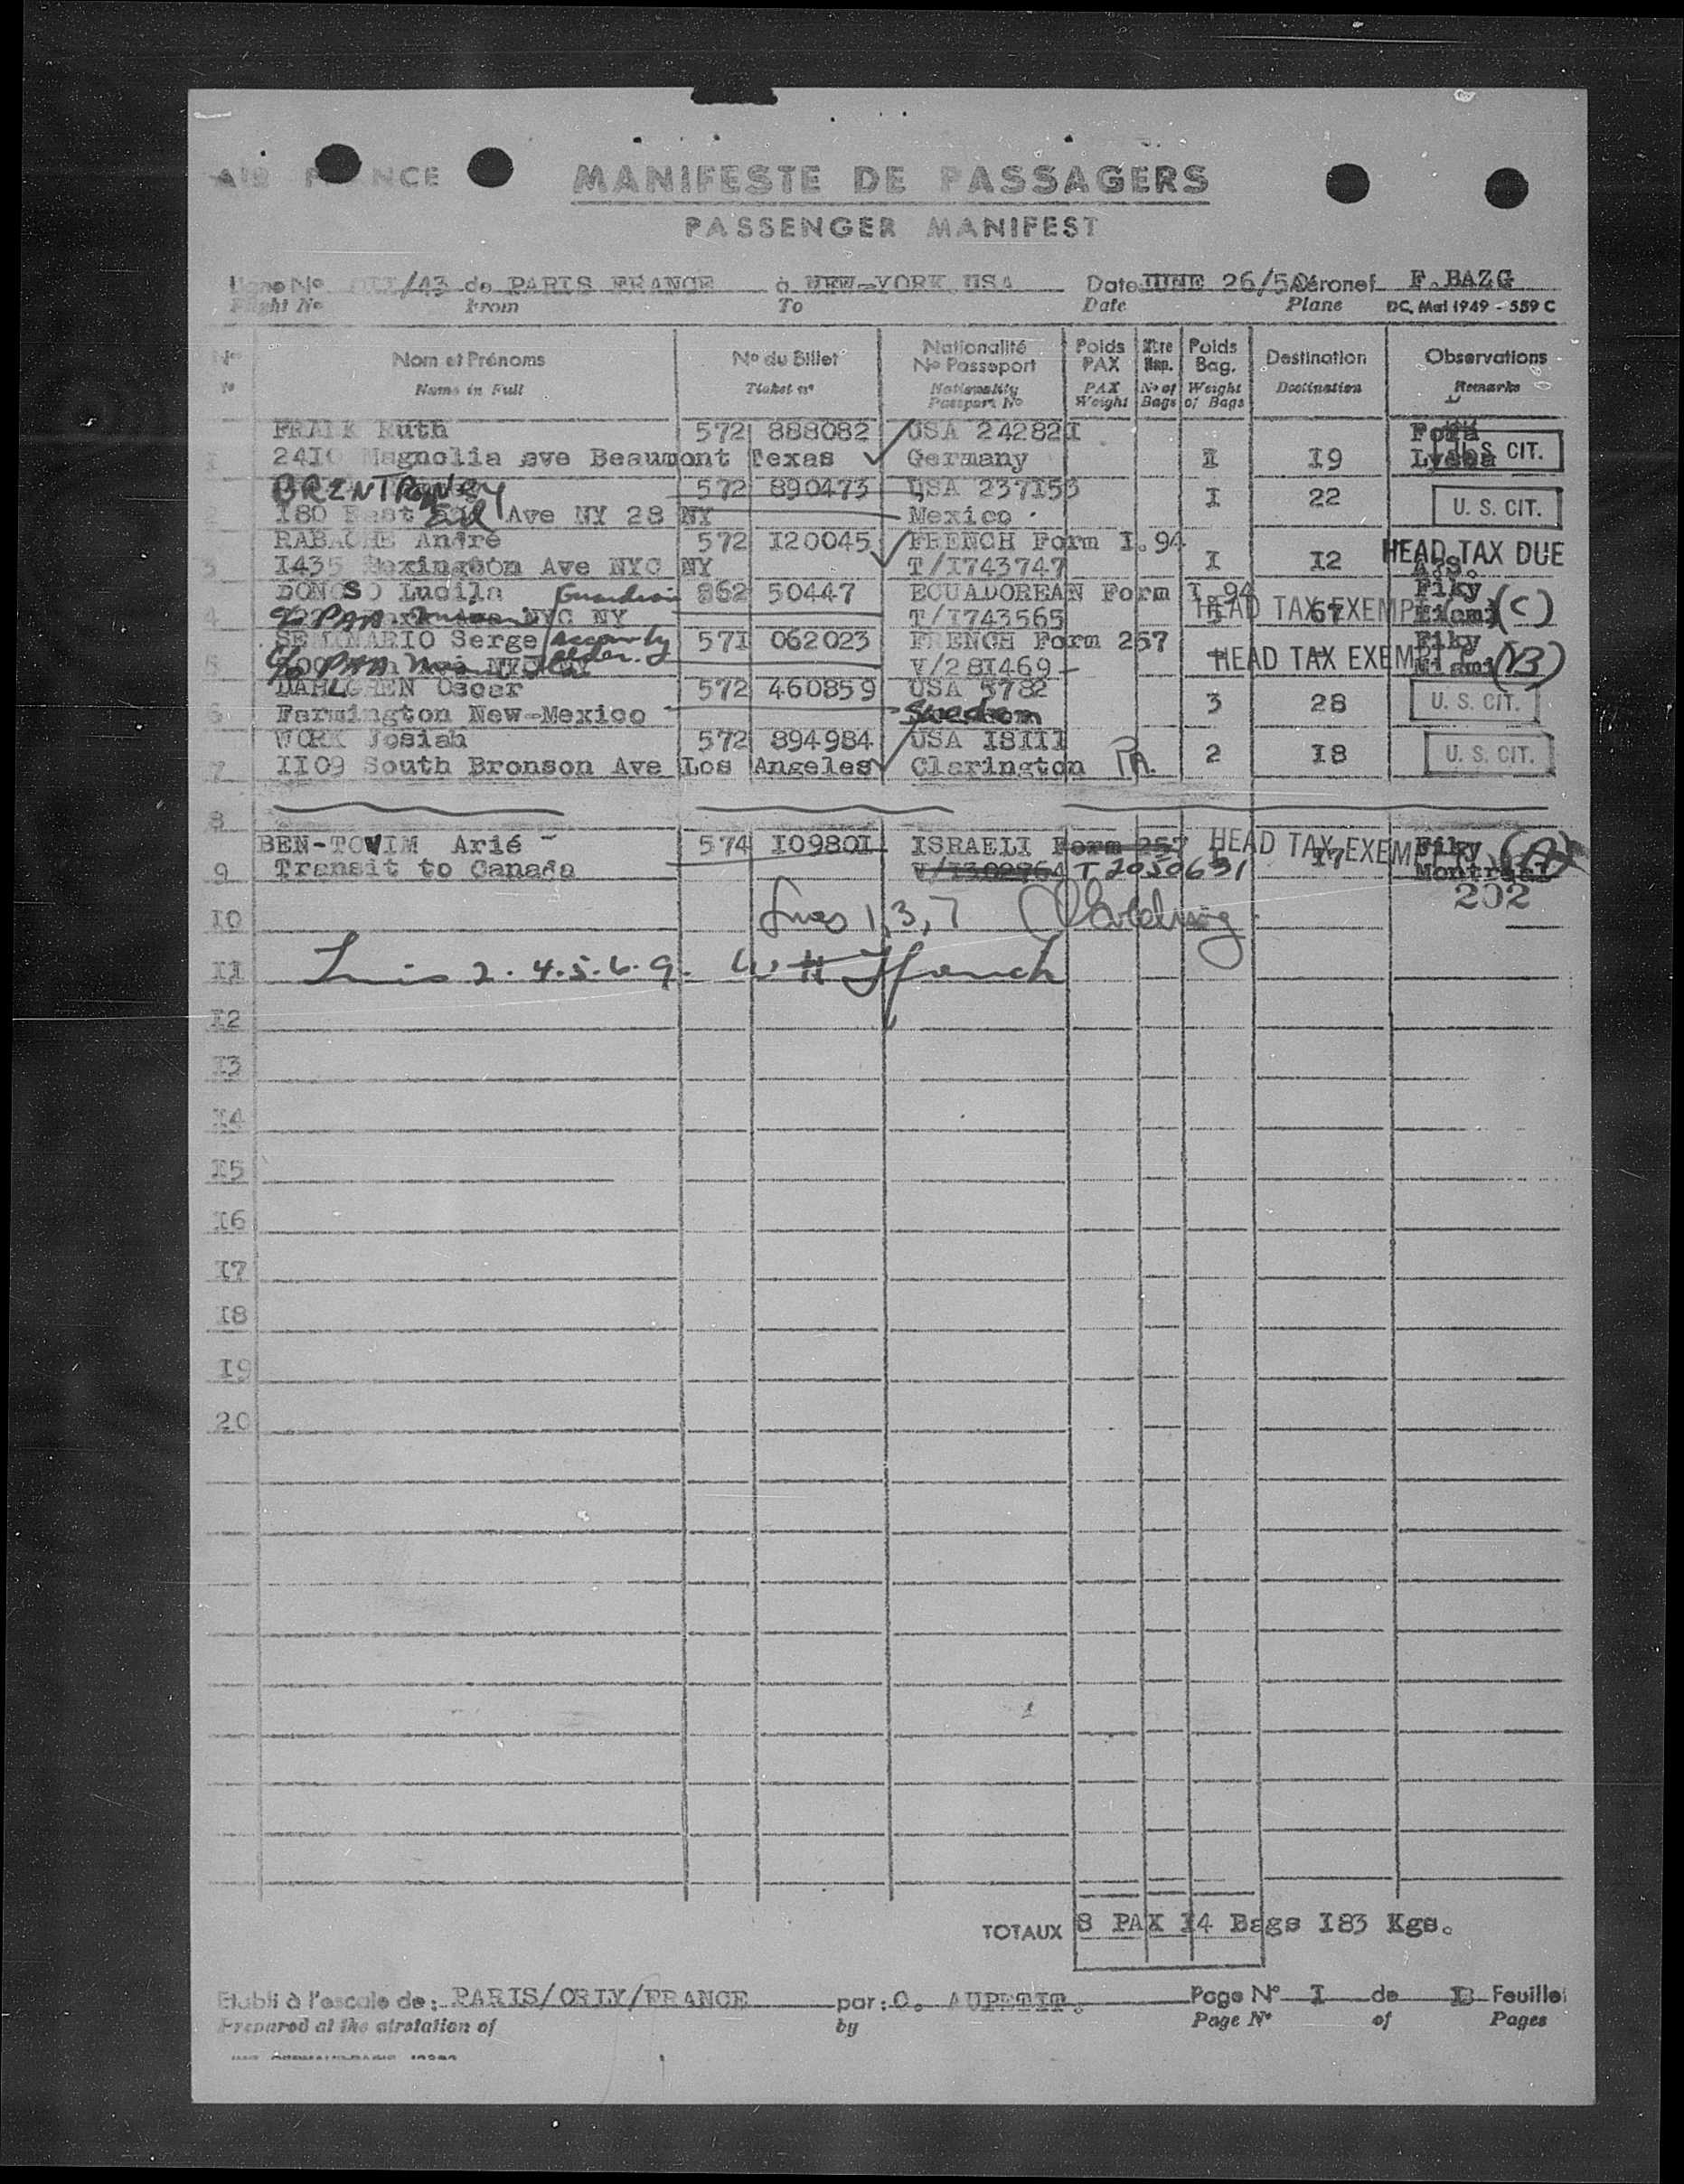 AIR FRANCE
MANIFESTE DE PASSAGERS
PASSENGER MANIFEST
Ligne No /43 de PARIS FRANCE à NEW-YORK USA Date JUNE 26/50 Aéronef F.BAZG
Flight No From To Date Plane DC. Mai 1949 - 559 C
No Nom et Prénoms No du Billet Nationalité No Passeport Poids PAX Bag. Poids Bag. Destination Observations
No Name in Full Ticket no Nationality Passport No PAX Weight No of Bags Weight of Bags Destination Remarks
FRANK Ruth 572 888082 USA 242821
Magnolia ave Beaumont Texas Germany I I9 U. S. CIT.
BRENT 572 890473 USA 237153
2 I80 East End Ave NY 28 NY Mexico I 22 U. S. CIT.
RABACHE André 572 I20045 FRENCH Form I.94
3 I435 Lexington Ave NYC NY T/I743747 I I2 HEAD TAX DUE
DONOSO Lucila Guardian 862 50447 ECUADOREAN Form I.94 Fiky
4 c/o PAA NYC NY T/I743565 HEAD TAX EXEMPT 67 (C)
SEMINARIO Serge accom by 57I 062023 FRENCH Form 257 Fiky
5 c/o PAA V/28I469 HEAD TAX EXEMPT (B)
DAHLGREN Oscar 572 460859 USA 5782
6 Farmington New-Mexico Sweden 3 28 U. S. CIT.
WORK Josiah 572 894984 USA I8III
7 II09 South Bronson Ave Los Angeles Clarington PA. 2 I8 U. S. CIT.
8
BEN-TOVIM Arié 574 I0980I ISRAELI Form 257 HEAD TAX EXEMPT Fiky (A)
9 Transit to Canada V/I302764 T 2050631 I7 Montreal
202
I0 Lines 1, 3, 7
II Lines 2. 4. 5. 6. 9. W H Ffrench
I2
I3
I4
I5
I6
I7
I8
I9
20
TOTAUX 8 PAX I4 Bags I83 Kgs.
Etabli à l'escale de: PARIS/ORLY/FRANCE par: O. AUPETIT. Page No I de Feuillet
Prepared at the airstation of by Page No of Pages